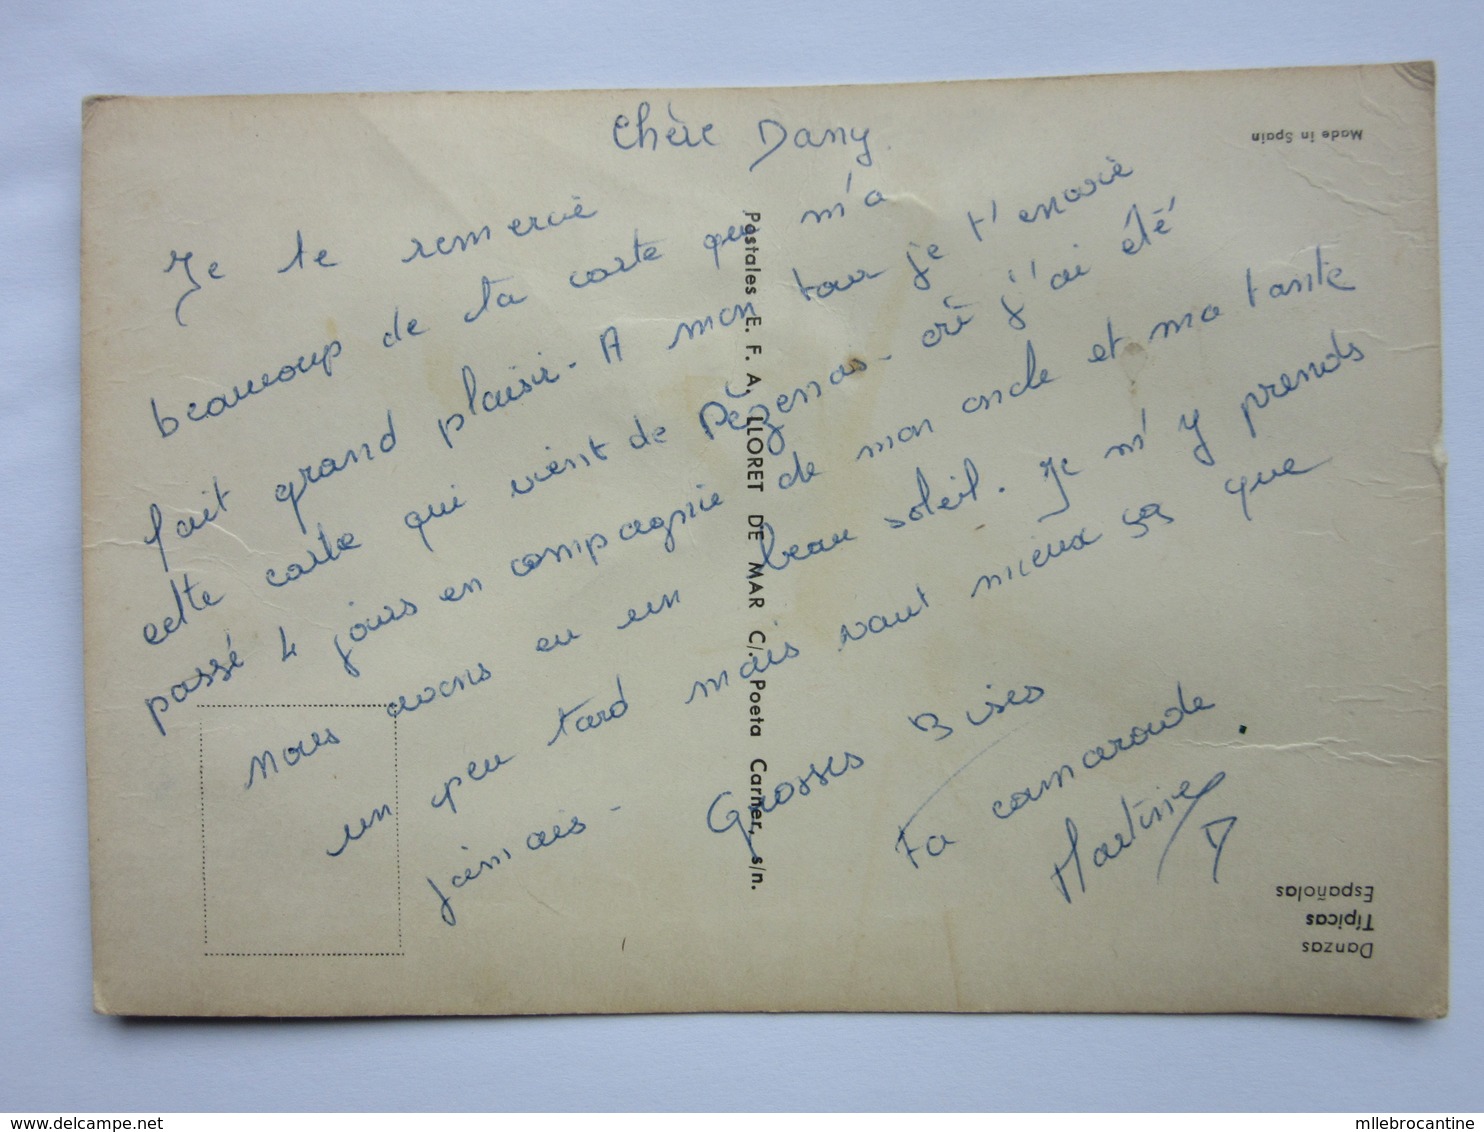 Chère Dany.
Je te remercie
beaucoup de ta carte qui m'a
fait grand plaisir - A mon tour je t'envoie
cette carte qui vient de Pézenas - où j'ai été
passé 4 jours en compagnie de mon oncle et ma tante
nous avons eu un beau soleil. Je m'y prends
un peu tard mais vaut mieux ça que
jamais - Grosses Bises
Ta camarade
Martine
Made in Spain
Postales E. F. A. LLORET DE MAR C/. Poeta Carner, s/n.
Danzas
Típicas
Españolas
www.delcampe.net
mllebrocantine